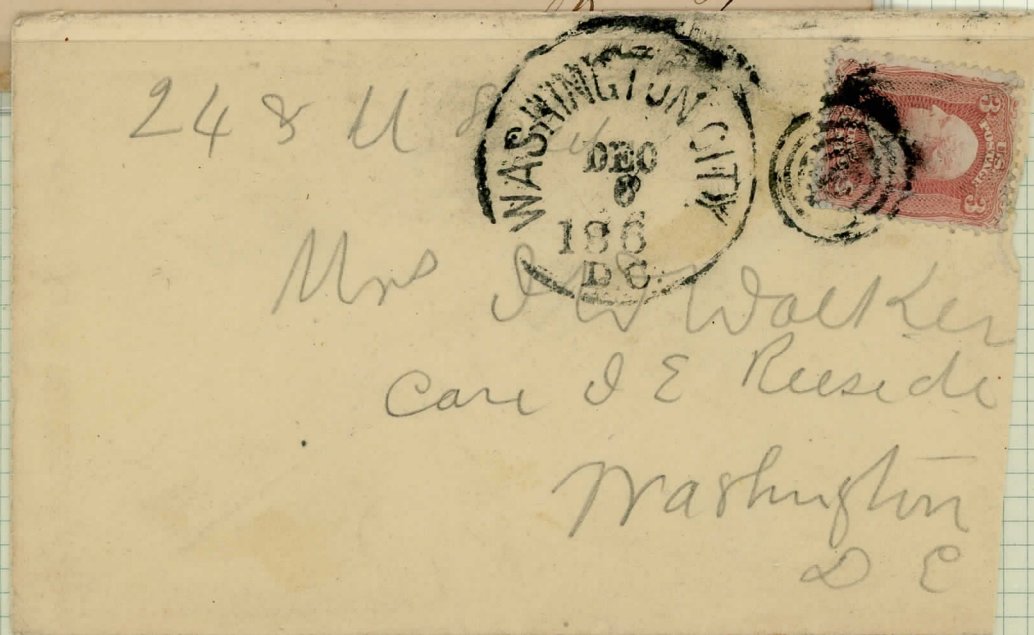 24 & M
WASHINGTON CITY
DEC
8
186
D.C.
U.S. POSTAGE
3
3
Mrs J W Walker
Care J E Reeside
Washington
D C